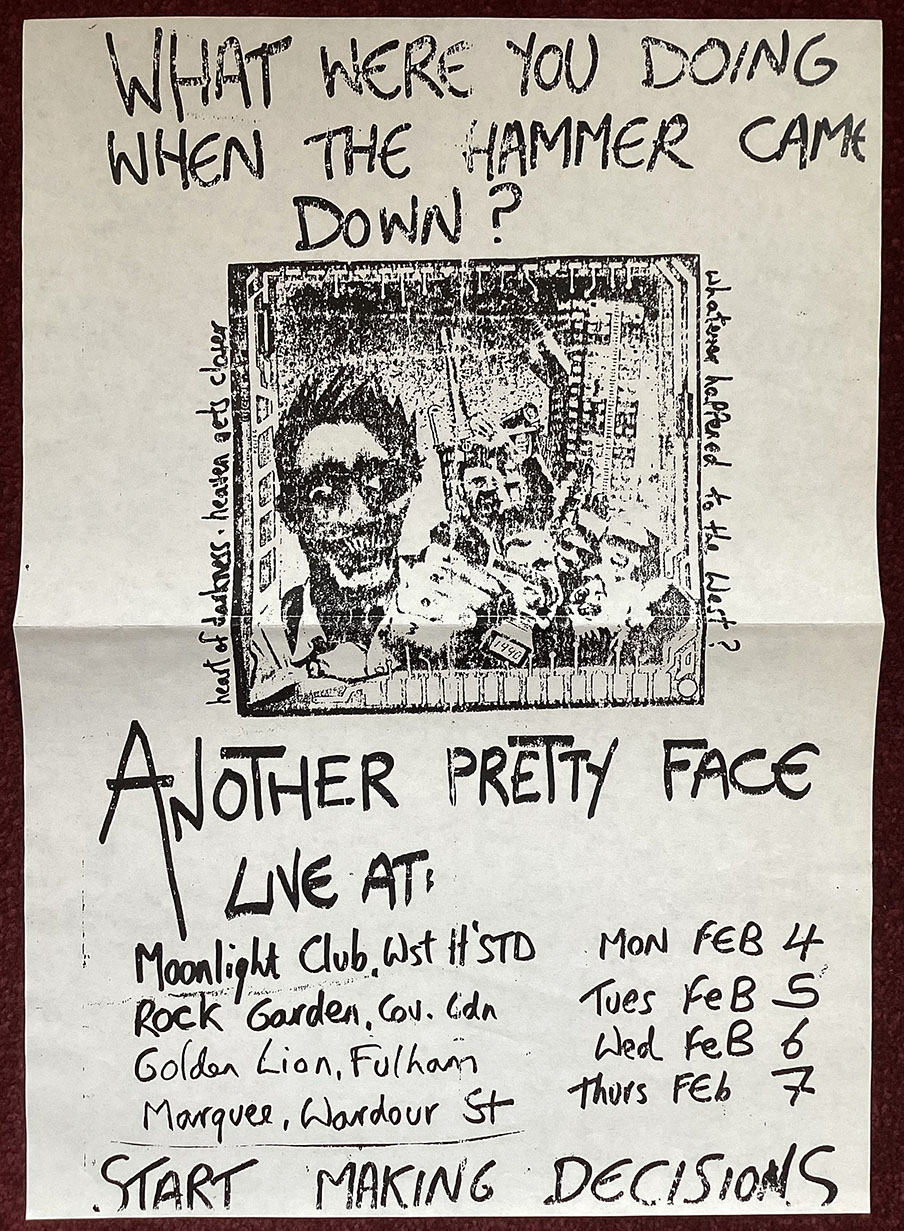 WHAT WERE YOU DOING
WHEN THE HAMMER CAME
DOWN?
heart of darkness. heaven gets closer
whatever happened to the West?
1990
ANOTHER PRETTY FACE
LIVE AT:
Moonlight Club, Wst H'STD MON FEB 4
ROCK Garden, Cov. Gdn Tues FeB 5
Golden Lion, Fulham Wed FeB 6
Marquee, Wardour St Thurs FEb 7
START MAKING DECISIONS